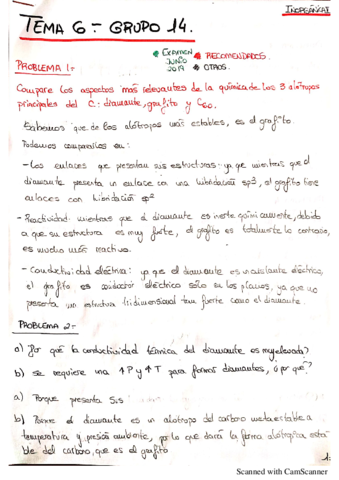 INORGÁNICA I
TEMA 6 - GRUPO 14.
* EXAMEN JUNIO 2019
* RECOMENDADOS.
* OTROS.
PROBLEMA 1=
Compare los aspectos más relevantes de la química de los 3 alótropos
principales del C: diamante, grafito y C60.
Sabemos que de los alótropos más estables, es el grafito.
Podemos compararlos en:
- Los enlaces que presentan sus estructuras: ya que mientras que el
diamante presenta un enlace con una hibridación sp3, el grafito tiene
enlaces con hibridación sp2
- Reactividad: mientras que el diamante es inerte químicamente, debido
a que su estructura es muy fuerte, el grafito es totalmente lo contrario,
es mucho más reactivo.
- Conductividad eléctrica: ya que el diamante es un aislante eléctrico,
el grafito es conductor eléctrico sólo en los planos, ya que no
presenta un estructura tridimensional tan fuerte como el diamante.
PROBLEMA 2=
a) ¿Por qué la conductividad térmica del diamante es muy elevada?
b) Se requiere una ↑P y ↑T para formar diamantes, ¿por qué?
a) Porque presenta
b) Porque el diamante es un alótropo del carbono metaestable a
temperatura y presión ambiente, por lo que dará la forma alotrópica esta
ble del carbono, que es el grafito
1.
Scanned with CamScanner